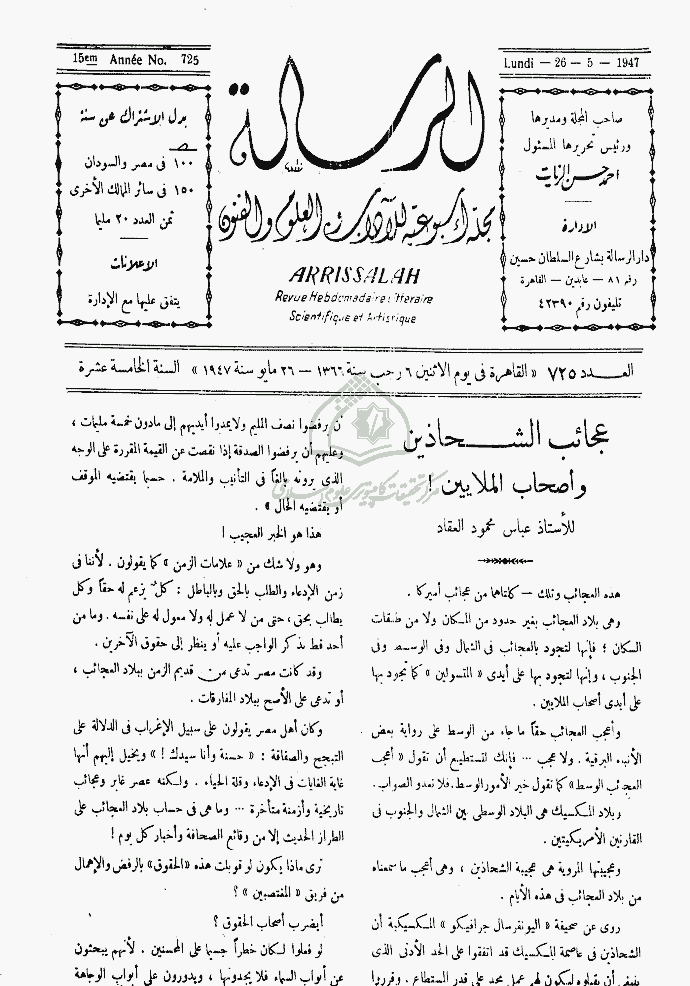 15em Année No. 725
Lundi – 26 – 5 – 1947
صاحب المجلة ومديرها
ورئيس تحريرها المسئول
احمد حسن الزيات
الإدارة
دار الرسالة بشارع السلطان حسين
رقم ٨١ — عابدين — القاهرة
تليفون رقم ٤٢٣٩٠
الرسالة
مجلة أسبوعية للآداب والعلوم والفنون
ARRISSALAH
Revue Hebdomadaire Litteraire
Scientifique et Artistique
بدل الاشتراك عن سنة
١٠٠ فى مصر والسودان
١٥٠ فى سائر الممالك الأخرى
ثمن العدد ٢٠ مليما
الإعلانات
يتفق عليها مع الإدارة
العـــدد ٧٢٥ « القاهرة فى يوم الاثنين ٦ رجب سنة ١٣٦٦ — ٢٦ مايو سنة ١٩٤٧ » السنة الخامسة عشرة
عجائب الشـــحاذين
وأصحاب الملايين !
للأستاذ عباس محمود العقاد
هذه العجائب وتلك — كلتاهما من عجائب أميركا .
وهى بلاد العجائب بغير حدود من المكان ولا من طبقات
السكان ؛ فإنها لتجود بالعجائب فى الشمال وفى الوسط وفى
الجنوب ، وإنها لتجود بها على أيدى « المتسولين » كما تجود بها
على أيدى أصحاب الملايين .
وأعجب العجائب حقاً ما جاء من الوسط على رواية بعض
الأنباء البرقية . ولا عجب ... فإنك لتستطيع أن تقول « أعجب
العجائب الوسط » كما تقول خير الأمور الوسط . فلا تعدو الصواب .
وبلاد المكسيك هى البلاد الوسطى بين الشمال والجنوب فى
القارتين الأمريكيتين .
وعجيبتها المروية هى عجيبة الشحاذين ، وهى أعجب ما سمعناه
من بلاد العجائب فى هذه الأيام .
روى عن صحيفة « اليونفرسال جرافيكو » المكسيكية أن
الشحاذين فى عاصمة المكسيك قد اتفقوا على الحد الأدنى الذى
ينبغى أن يقبلوه ليكون لهم عمل مجد على قدر المستطاع . وقرروا
أن يرفضوا نصف المليم ولا يمدوا أيديهم إلى مادون خمسة مليمات ،
وعليهم أن يرفضوا الصدقة إذا نقصت عن القيمة المقررة على الوجه
الذى يرونه بالغاً فى التأنيب والملامة . حسبما يقتضيه الموقف
أو يقتضيه الحال » .
هذا هو الخبر العجيب !
وهو ولا شك من « علامات الزمن » كما يقولون . لأننا فى
زمن الإدعاء والطلب بالحق وبالباطل : كلٌ يزعم له حقاً وكل
يطالب بحق ، حتى من لا عمل له ولا معول له على نفسه . وما من
أحد قط يذكر الواجب عليه أو ينظر إلى حقوق الآخرين .
وقد كانت مصر تدعى من قديم الزمن ببلاد العجائب ،
أو تدعى على الأصح ببلاد المفارقات .
وكان أهل مصر يقولون على سبيل الإغراب فى الدلالة على
التبجح والصفاقة : « حسنة وأنا سيدك ! » ويخيل إليهم أنها
غاية الغايات فى الإدعاء وقلة الحياء . ولكنه عصر غابر وعجائب
تاريخية وأزمنة متأخرة ... وما هى فى حساب بلاد العجائب على
الطراز الحديث إلا من وقائع الصحافة وأخبار كل يوم !
ترى ماذا يكون لو قوبلت هذه « الحقوق » بالرفض والإهمال
من فريق « المغتصبين » ؟
أيضرب أصحاب الحقوق ؟
لو فعلوا لكان خطراً جسيما على المحسنين . لأنهم يبحثون
عن أبواب السماء فلا يجدونها ، ويدورون على أبواب الوجاهة